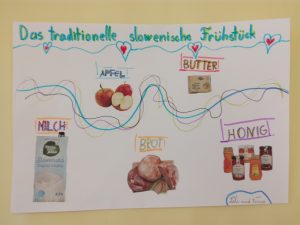 Das traditionelle slowenische Frühstück
APFEL
BUTTER
MILCH
BROT
HONIG